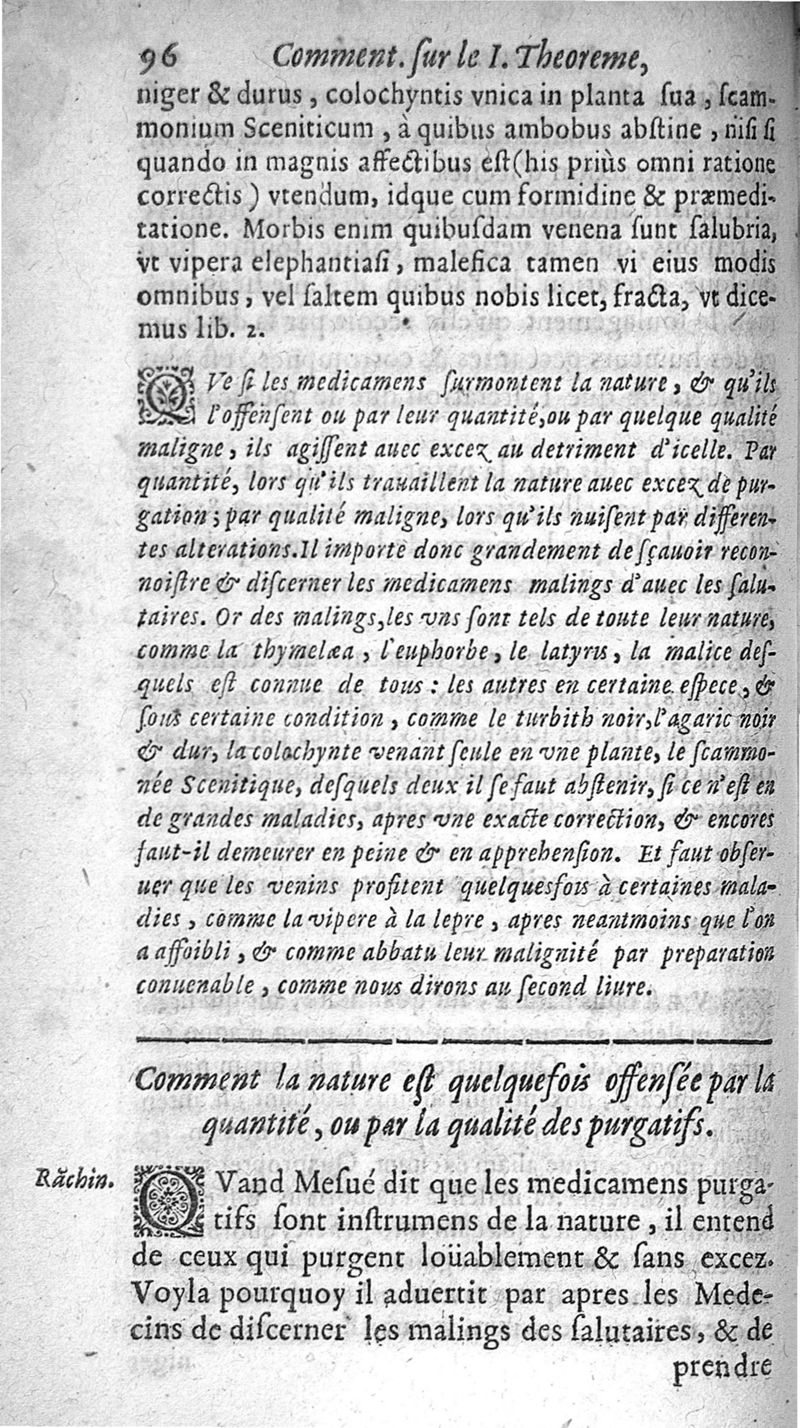 96 Comment. ſur le I. Theoreme,
niger & durus, colochyntis vnica in planta ſua, ſcam-
monium Sceniticum, à quibus ambobus abſtine, niſi ſi
quando in magnis affectibus eſt (his priùs omni ratione
correctis) vtendum, idque cum formidine & præmedi-
tatione. Morbis enim quibuſdam venena ſunt ſalubria,
vt vipera elephantiaſi, malefica tamen vi eius modis
omnibus, vel ſaltem quibus nobis licet, fracta, vt dice-
mus lib. 2.
QVe ſi les medicamens ſurmontent la nature, & qu'ils
l'offenſent ou par leur quantité, ou par quelque qualité
maligne, ils agiſſent auec excez au detriment d'icelle. Par
quantité, lors qu'ils trauaillent la nature auec excez de pur-
gation; par qualité maligne, lors qu'ils nuiſent par differen-
tes alterations. Il importe donc grandement de ſçauoir recon-
noiſtre & diſcerner les medicamens malings d'auec les ſalu-
taires. Or des malings, les vns ſont tels de toute leur nature,
comme la thymelæa, l'euphorbe, le latyris, la malice deſ-
quels eſt connue de tous: les autres en certaine eſpece, &
ſous certaine condition, comme le turbith noir, l'agaric noir
& dur, la colochynte venant ſeule en vne plante, le ſcammo-
née Scenitique, deſquels deux il ſe faut abſtenir, ſi ce n'eſt en
de grandes maladies, apres vne exacte correction, & encores
faut-il demeurer en peine & en apprehenſion. Et faut obſer-
uer que les venins profitent quelquesfois à certaines mala-
dies, comme la vipere à la lepre, apres neantmoins que l'on
a affoibli, & comme abbatu leur malignité par preparation
conuenable, comme nous dirons au ſecond liure.
Comment la nature eſt quelquefois offenſée par la
quantité, ou par la qualité des purgatifs.
Rãchin. QVand Meſué dit que les medicamens purga-
tifs ſont inſtrumens de la nature, il entend
de ceux qui purgent loüablement & ſans excez.
Voyla pourquoy il aduertit par apres les Mede-
cins de diſcerner les malings des ſalutaires, & de
prendre